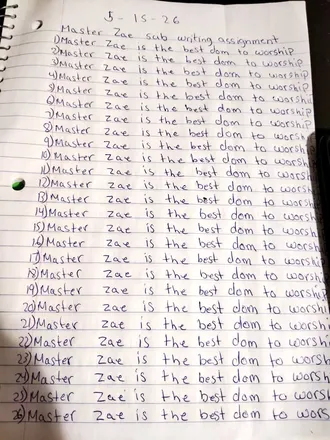 5-15-26
Master Zae sub writing assignment
1)Master Zae is the best dom to worship
2)Master Zae is the best dom to worship
3)Master Zae is the best dom to worship
4)Master Zae is the best dom to worship
5)Master Zae is the best dom to worship
6)Master Zae is the best dom to worship
7)Master Zae is the best dom to worship
8)Master Zae is the best dom to worsh
9)Master Zae is the best dom to worsh
10)Master Zae is the best dom to worsh
11)Master Zae is the best dom to worsh
12)Master Zae is the best dom to worsh
13)Master Zae is the best dom to worsh
14)Master Zae is the best dom to worsh
15)Master Zae is the best dom to worsh
16)Master Zae is the best dom to worsh
17)Master Zae is the best dom to worsh
18)Master Zae is the best dom to worsh
19)Master Zae is the best dom to worship
20)Master Zae is the best dom to worsh
21)Master Zae is the best dom to worsh
22)Master Zae is the best dom to worsh
23)Master Zae is the best dom to worsh
24)Master Zae is the best dom to worsh
25)Master Zae is the best dom to worsh
26)Master Zae is the best dom to wors